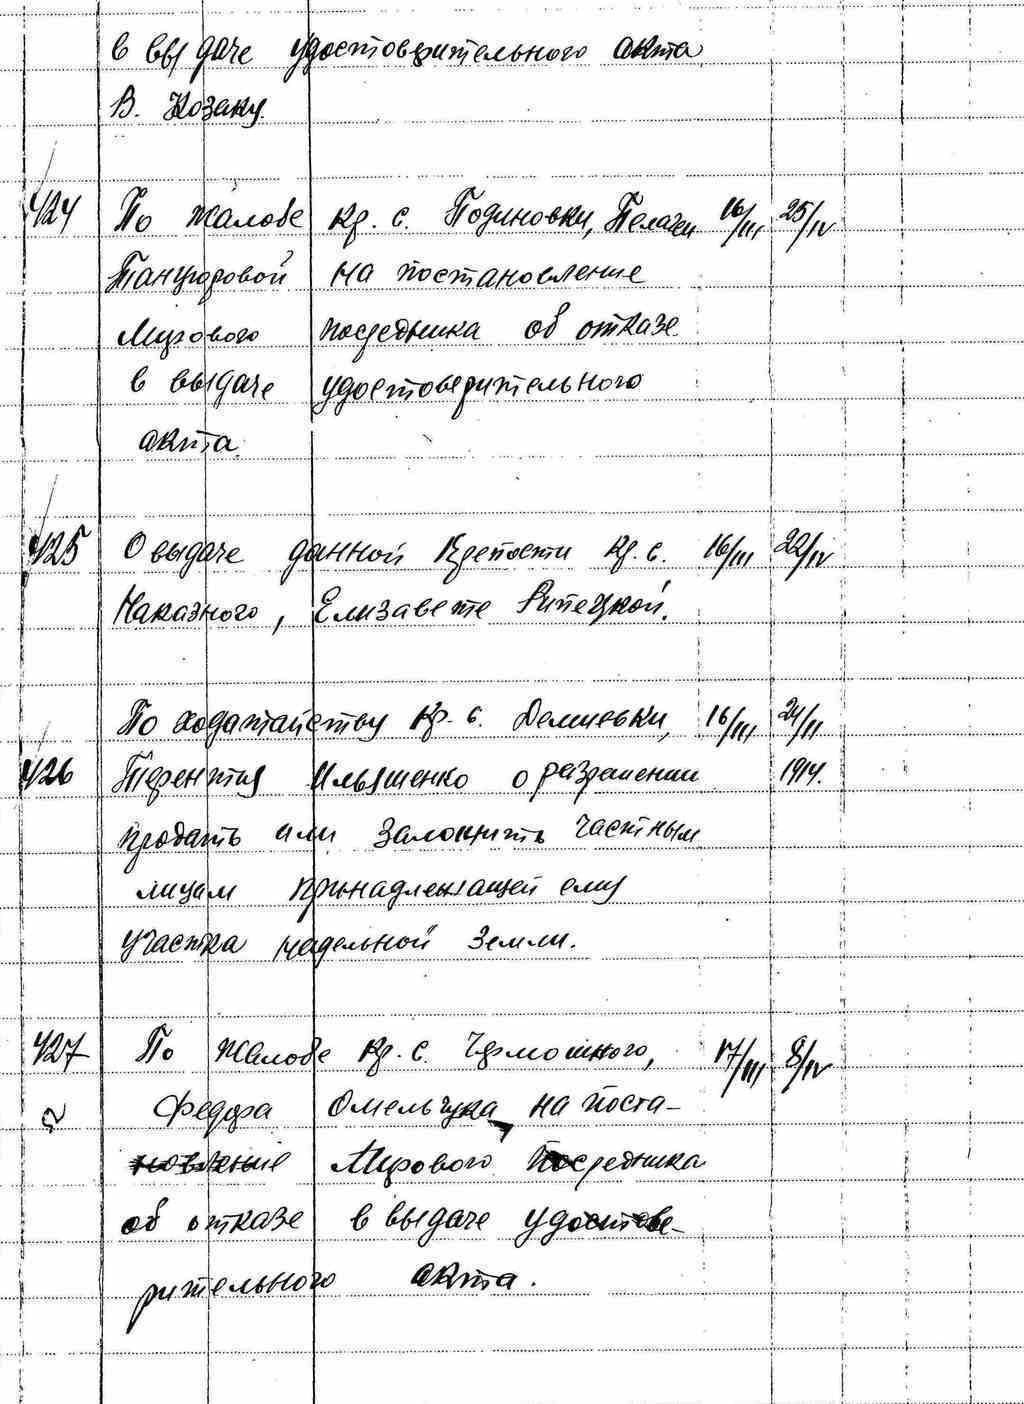 в выдаче удостоверительного акта
В. Козаку.
424 По жалобе кр. с. Подиновки, Пелагеи 16/III 25/IV
Танцюровой на постановление
Мирового посредника об отказе
в выдаче удостоверительного
акта.
425 О выдаче данной крепости кр. с. 16/III 22/IV
Наказного, Елизавете Рипецкой.
По ходатайству кр. с. Демиевки, 16/III 24/II
426 Терентия Ильяшенко о разрешении 1914.
продать или заложить частным
лицам принадлежащей ему
участка надельной земли.
427 По жалобе кр. с. Чермошного, 17/III 8/IV
52 Федора Омельчука на поста-
новление Мирового посредника
об отказе в выдаче удостове-
рительного акта.